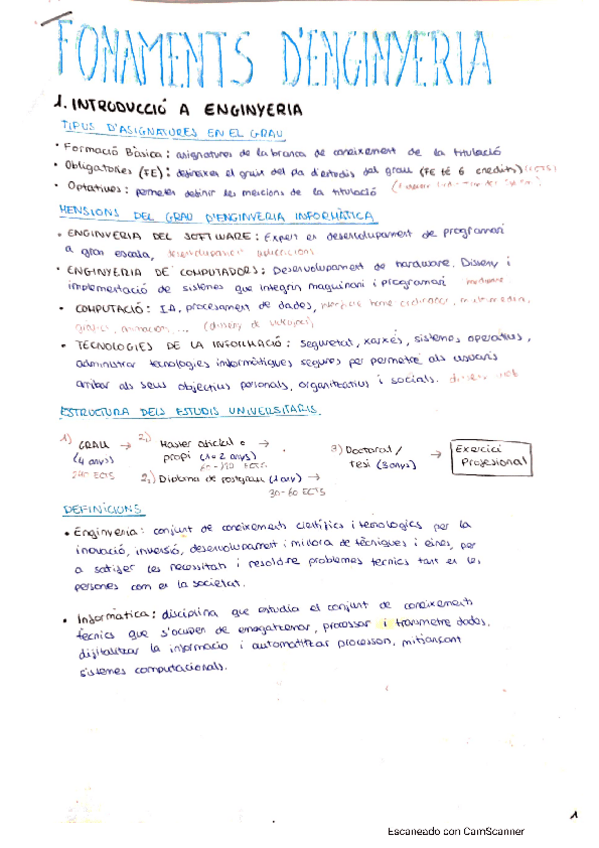 FONAMENTS D'ENGINYERIA
1. INTRODUCCIÓ A ENGINYERIA
TIPUS D'ASIGNATURES EN EL GRAU
• Formació Bàsica: asignatures de la branca de coneixement de la titulació
• Obligatories (FE): defineixen el gruix del pla d'estudis del grau (FE té 6 credits) (ECTS)
• Optatives: permeten definir les mencions de la titulació
MENSIONS DEL GRAU D'ENGINYERIA INFORMÀTICA
• ENGINYERIA DEL SOFTWARE: Expert en desenvolupament de programari
a gran escala, desenvolupament aplicacions
• ENGINYERIA DE COMPUTADORS: Desenvolupament de hardware. Disseny i
implementació de sistemes que integrin maquinari i programari hardware
• COMPUTACIÓ: IA, procesament de dades, multimedia,
animacion, ... (disseny de videojocs)
• TECNOLOGIES DE LA INFORMACIÓ: seguretat, xarxes, sistemes operatius,
administrar tecnologies informàtiques segures per permetre als usuaris
arribar als seus objectius personals, organitzatius i socials. disseny web
ESTRUCTURA DELS ESTUDIS UNIVERSITARIS.
1) GRAU → 2) Master oficial o → 3) Doctorat / → Exercici
(4 anys) propi (1 o 2 anys) tesi (3 anys) Profesional
240 ECTS 60-120 ECTS
2) Diploma de postgrau (1 any) →
30-60 ECTS
DEFINICIONS
• Enginyeria: conjunt de coneixements científics i tecnologics per la
inovació, inversió, desenvolupament i millora de tècniques i eines, per
a satisfer les necessitats i resoldre problemes tecnics tant en les
persones com en la societat.
• Informàtica: disciplina que estudia el conjunt de coneixements
tècnics que s'ocupen de emagatzemar, processar i transmetre dades,
digitalitzar la informacio i automatitzar processon, mitjançant
sistemes computacionals.
1
Escaneado con CamScanner